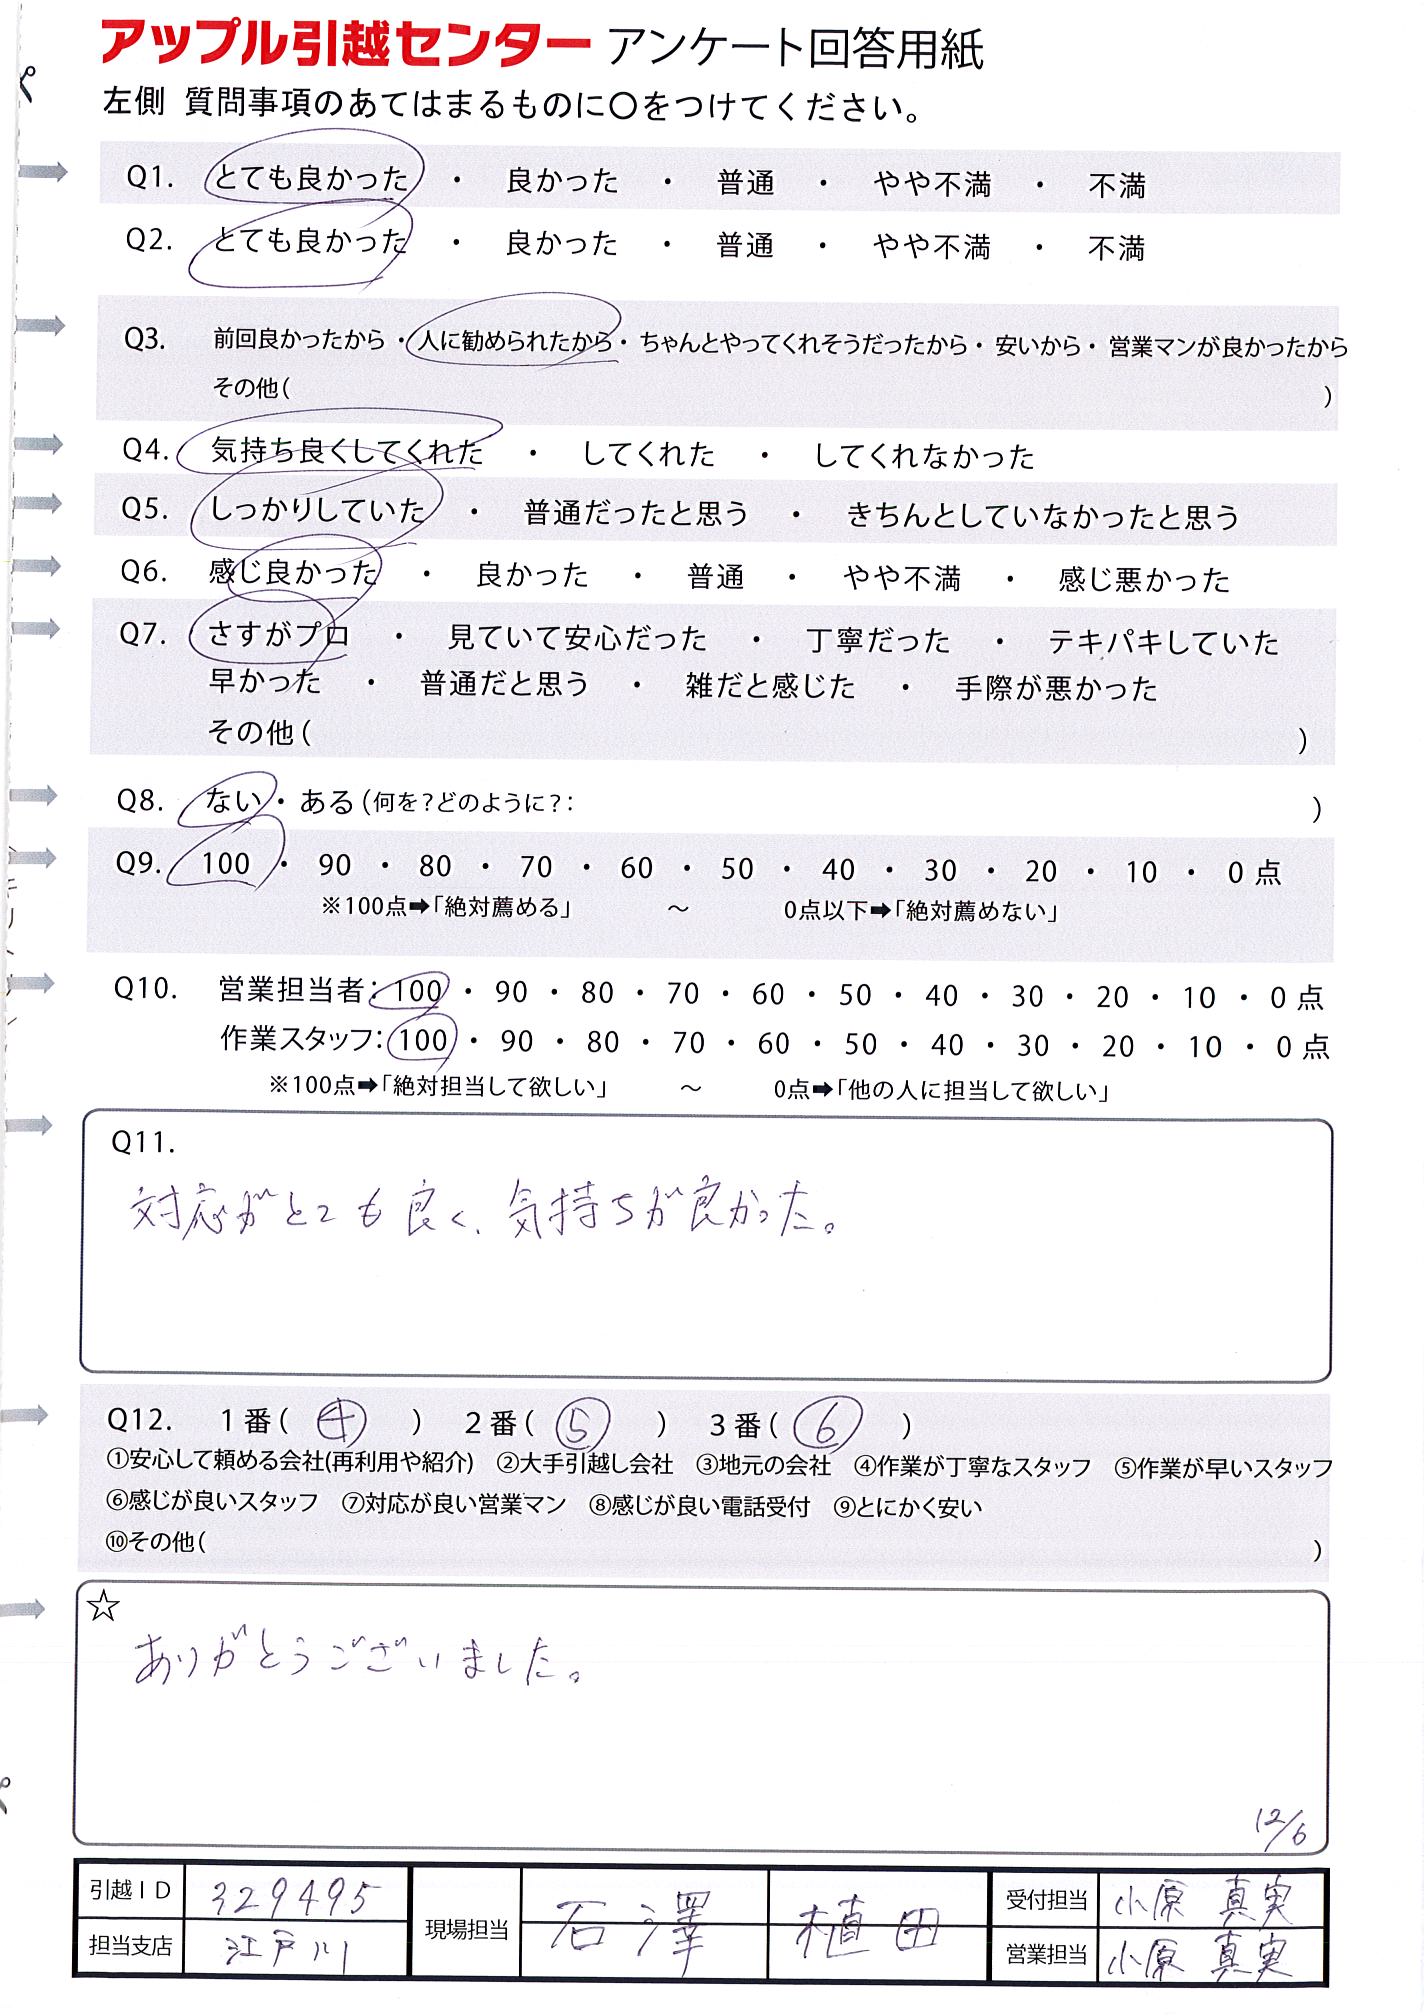 アップル引越センター アンケート回答用紙
左側 質問事項のあてはまるものに○をつけてください。
Q1. とても良かった ・ 良かった ・ 普通 ・ やや不満 ・ 不満
Q2. とても良かった ・ 良かった ・ 普通 ・ やや不満 ・ 不満
Q3. 前回良かったから・人に勧められたから・ちゃんとやってくれそうだったから・安いから・営業マンが良かったから
その他( )
Q4. 気持ち良くしてくれた ・ してくれた ・ してくれなかった
Q5. しっかりしていた ・ 普通だったと思う ・ きちんとしていなかったと思う
Q6. 感じ良かった ・ 良かった ・ 普通 ・ やや不満 ・ 感じ悪かった
Q7. さすがプロ ・ 見ていて安心だった ・ 丁寧だった ・ テキパキしていた
早かった ・ 普通だと思う ・ 雑だと感じた ・ 手際が悪かった
その他( )
Q8. ない・ある(何を?どのように?: )
Q9. 100 ・ 90 ・ 80 ・ 70 ・ 60 ・ 50 ・ 40 ・ 30 ・ 20 ・ 10 ・ 0点
※100点➡「絶対薦める」 ～ 0点以下➡「絶対薦めない」
Q10. 営業担当者:100・90・80・70・60・50・40・30・20・10・0点
作業スタッフ:100・90・80・70・60・50・40・30・20・10・0点
※100点➡「絶対担当して欲しい」 ～ 0点➡「他の人に担当して欲しい」
Q11.
対応がとても良く、気持ちが良かった。
Q12. 1番( ④ ) 2番( ⑤ ) 3番( ⑥ )
①安心して頼める会社(再利用や紹介) ②大手引越し会社 ③地元の会社 ④作業が丁寧なスタッフ ⑤作業が早いスタッフ
⑥感じが良いスタッフ ⑦対応が良い営業マン ⑧感じが良い電話受付 ⑨とにかく安い
⑩その他( )
☆
ありがとうございました。
12/6
引越ID 329495 現場担当 石澤 植田 受付担当 小原 真実
担当支店 江戸川 営業担当 小原 真実